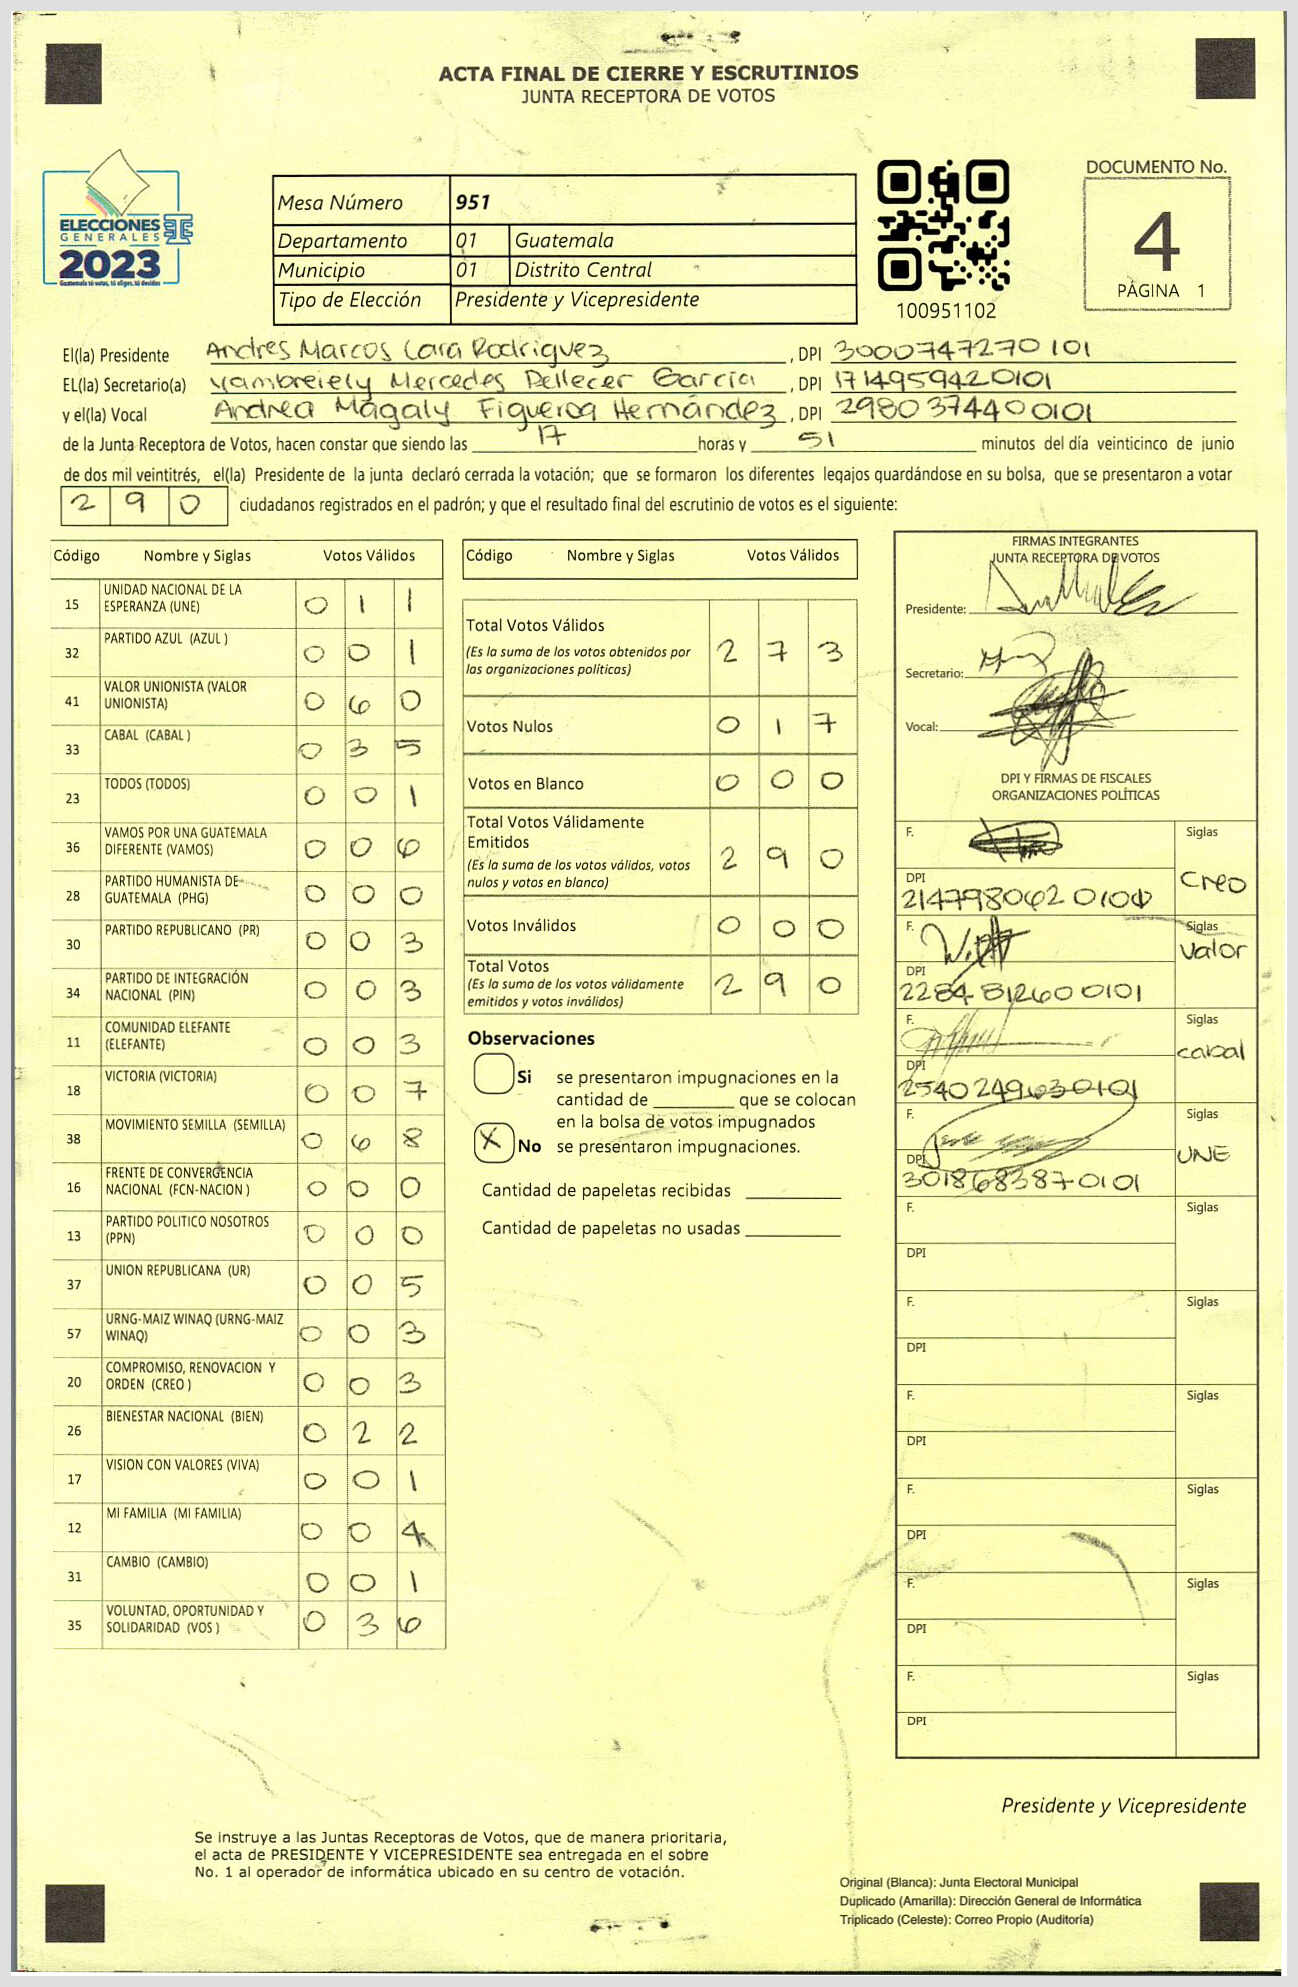 ACTA FINAL DE CIERRE Y ESCRUTINIOS
JUNTA RECEPTORA DE VOTOS
ELECCIONES
GENERALES
2023
Guatemala tú votas, tú eliges, tú decides
Mesa Número 951
Departamento 01 Guatemala
Municipio 01 Distrito Central
Tipo de Elección Presidente y Vicepresidente
100951102
DOCUMENTO No.
4
PÁGINA 1
El(la) Presidente Andres Marcos Lara Rodriguez, DPI 3000747270101
EL(la) Secretario(a) Yambreiely Mercedes Pellecer García, DPI 1714959420101
y el(la) Vocal Andrea Magaly Figueroa Hernández, DPI 2980374400101
de la Junta Receptora de Votos, hacen constar que siendo las 17 horas y 51 minutos del día veinticinco de junio
de dos mil veintitrés, el(la) Presidente de la junta declaró cerrada la votación; que se formaron los diferentes legajos guardándose en su bolsa, que se presentaron a votar
290 ciudadanos registrados en el padrón; y que el resultado final del escrutinio de votos es el siguiente:
Código Nombre y Siglas Votos Válidos
15 UNIDAD NACIONAL DE LA ESPERANZA (UNE) 0 1 1
32 PARTIDO AZUL (AZUL ) 0 0 1
41 VALOR UNIONISTA (VALOR UNIONISTA) 0 6 0
33 CABAL (CABAL ) 0 3 5
23 TODOS (TODOS) 0 0 1
36 VAMOS POR UNA GUATEMALA DIFERENTE (VAMOS) 0 0 6
28 PARTIDO HUMANISTA DE GUATEMALA (PHG) 0 0 0
30 PARTIDO REPUBLICANO (PR) 0 0 3
34 PARTIDO DE INTEGRACIÓN NACIONAL (PIN) 0 0 3
11 COMUNIDAD ELEFANTE (ELEFANTE) 0 0 3
18 VICTORIA (VICTORIA) 0 0 7
38 MOVIMIENTO SEMILLA (SEMILLA) 0 6 8
16 FRENTE DE CONVERGENCIA NACIONAL (FCN-NACION ) 0 0 0
13 PARTIDO POLITICO NOSOTROS (PPN) 0 0 0
37 UNION REPUBLICANA (UR) 0 0 5
57 URNG-MAIZ WINAQ (URNG-MAIZ WINAQ) 0 0 3
20 COMPROMISO, RENOVACION Y ORDEN (CREO ) 0 0 3
26 BIENESTAR NACIONAL (BIEN) 0 2 2
17 VISION CON VALORES (VIVA) 0 0 1
12 MI FAMILIA (MI FAMILIA) 0 0 4
31 CAMBIO (CAMBIO) 0 0 1
35 VOLUNTAD, OPORTUNIDAD Y SOLIDARIDAD (VOS ) 0 3 6
Código Nombre y Siglas Votos Válidos
Total Votos Válidos 2 7 3
(Es la suma de los votos obtenidos por
las organizaciones políticas)
Votos Nulos 0 1 7
Votos en Blanco 0 0 0
Total Votos Válidamente
Emitidos 2 9 0
(Es la suma de los votos válidos, votos
nulos y votos en blanco)
Votos Inválidos 0 0 0
Total Votos 2 9 0
(Es la suma de los votos válidamente
emitidos y votos inválidos)
Observaciones
Si se presentaron impugnaciones en la
cantidad de ________ que se colocan
en la bolsa de votos impugnados
X No se presentaron impugnaciones.
Cantidad de papeletas recibidas
Cantidad de papeletas no usadas
FIRMAS INTEGRANTES
JUNTA RECEPTORA DE VOTOS
Presidente:
Secretario:
Vocal:
DPI Y FIRMAS DE FISCALES
ORGANIZACIONES POLÍTICAS
F. Siglas
Creo
DPI
F. Siglas
Valor
DPI
2284812600101
F. Siglas
cabal
DPI
2540249630101
F. Siglas
UNE
DPI
3018683870101
F. Siglas
DPI
F. Siglas
DPI
F. Siglas
DPI
F. Siglas
DPI
F. Siglas
DPI
F. Siglas
DPI
Presidente y Vicepresidente
Se instruye a las Juntas Receptoras de Votos, que de manera prioritaria,
el acta de PRESIDENTE Y VICEPRESIDENTE sea entregada en el sobre
No. 1 al operador de informática ubicado en su centro de votación.
Original (Blanca): Junta Electoral Municipal
Duplicado (Amarilla): Dirección General de Informática
Triplicado (Celeste): Correo Propio (Auditoría)